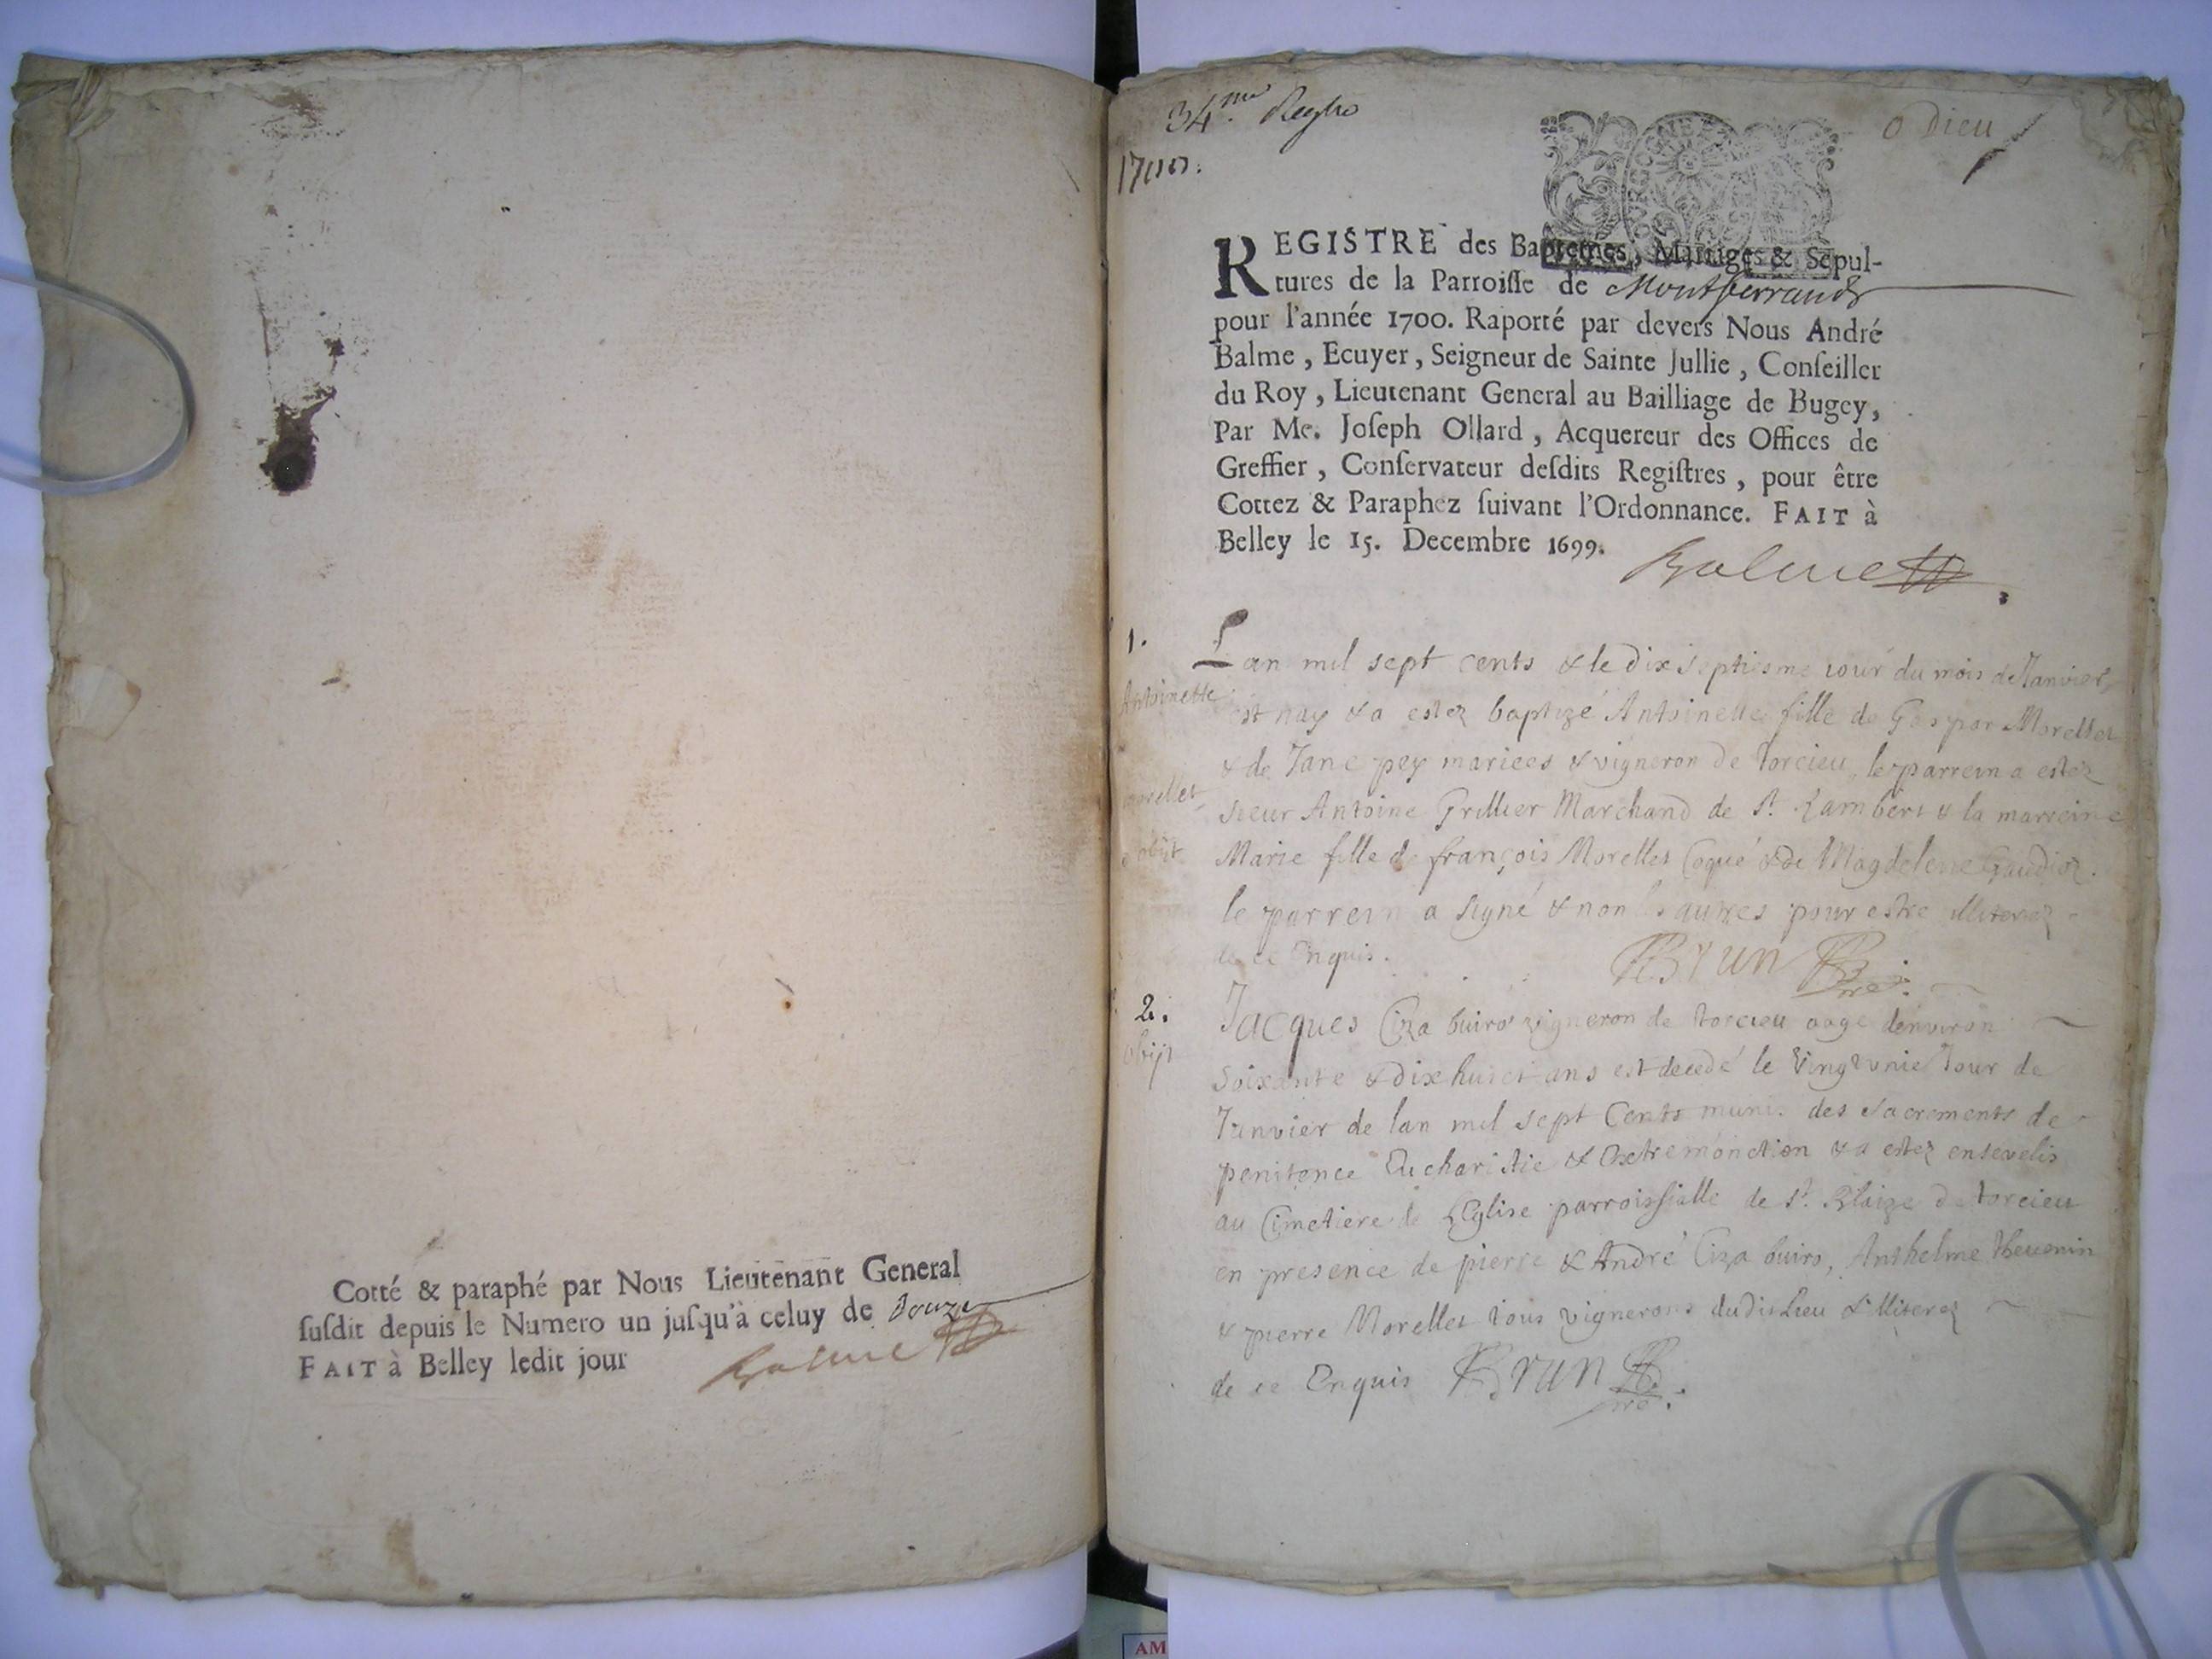 Cotté & paraphé par Nous Lieutenant General
susdit depuis le Numero un jusqu'à celuy de douze
FAIT à Belley ledit jour Balme
34.me Regtre
1700.
O Dieu
REGISTRE des Baptemes, Mariages & Sepul-
tures de la Parroisse de Montferrand
pour l'année 1700. Raporté par devers Nous André
Balme, Ecuyer, Seigneur de Sainte Jullie, Conseiller
du Roy, Lieutenant General au Bailliage de Bugey,
Par Me. Joseph Ollard, Acquereur des Offices de
Greffier, Conservateur desdits Registres, pour être
Cottez & Paraphez suivant l'Ordonnance. FAIT à
Belley le 15. Decembre 1699.
Balme
1.
Lan mil sept cents & le dix septiesme iour du mois de Janvier
Antoinette
est nay & a estez baptizé Antoinette fille de Gaspar Morellet
& de Jane pey mariees & vigneron de torcieu, le parrein a estez
morellet
sieur Antoine Grillier Marchand de St. Lambert & la marreine
Marie fille de françois Morellet Coqué & de Magdeleine Gaudioz.
le parrein a signé & non les autres pour estre illiterez
de ce Enquis. Brun
2.
Jacques Ciza buiro vigneron de torcieu aagé denviron
obijt
soixante & dix huict ans est decedé le vingt unie Jour de
Janvier de lan mil sept Cents muni des sacrements de
penitence Eucharistie & Extremonction & a estez ensevelis
au Cimetiere de LEglise parroissialle de St. Blaize de torcieu
en presence de pierre & André Ciza buiro, Anthelme thevenin
& pierre Morellet tous vignerons dudit Lieu & illiterez
de ce Enquis Brun
AM